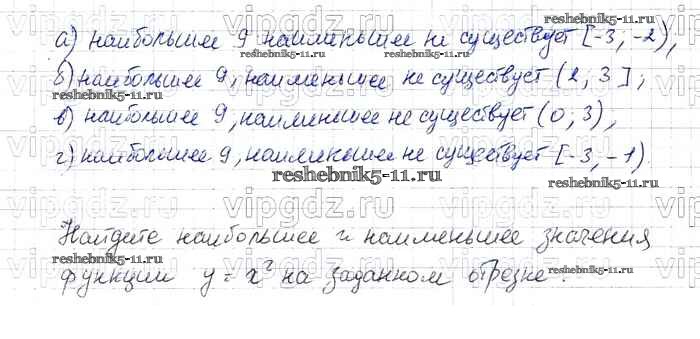 а) наибольшее 9 наименьшее не существует [-3; -2),
б) наибольшее 9, наименьшее не существует (2; 3];
в) наибольшее 9, наименьшее не существует (0; 3),
г) наибольшее 9, наименьшее не существует [-3; -1).
Найдите наибольшее и наименьшее значения
функции y = x² на заданном отрезке.
reshebnik5-11.ru
reshebnik5-11.ru
reshebnik5-11.ru
reshebnik5-11.ru
reshebnik5-11.ru
reshebnik5-11.ru
reshebnik5-11.ru
reshebnik5-11.ru
vipgdz.ru